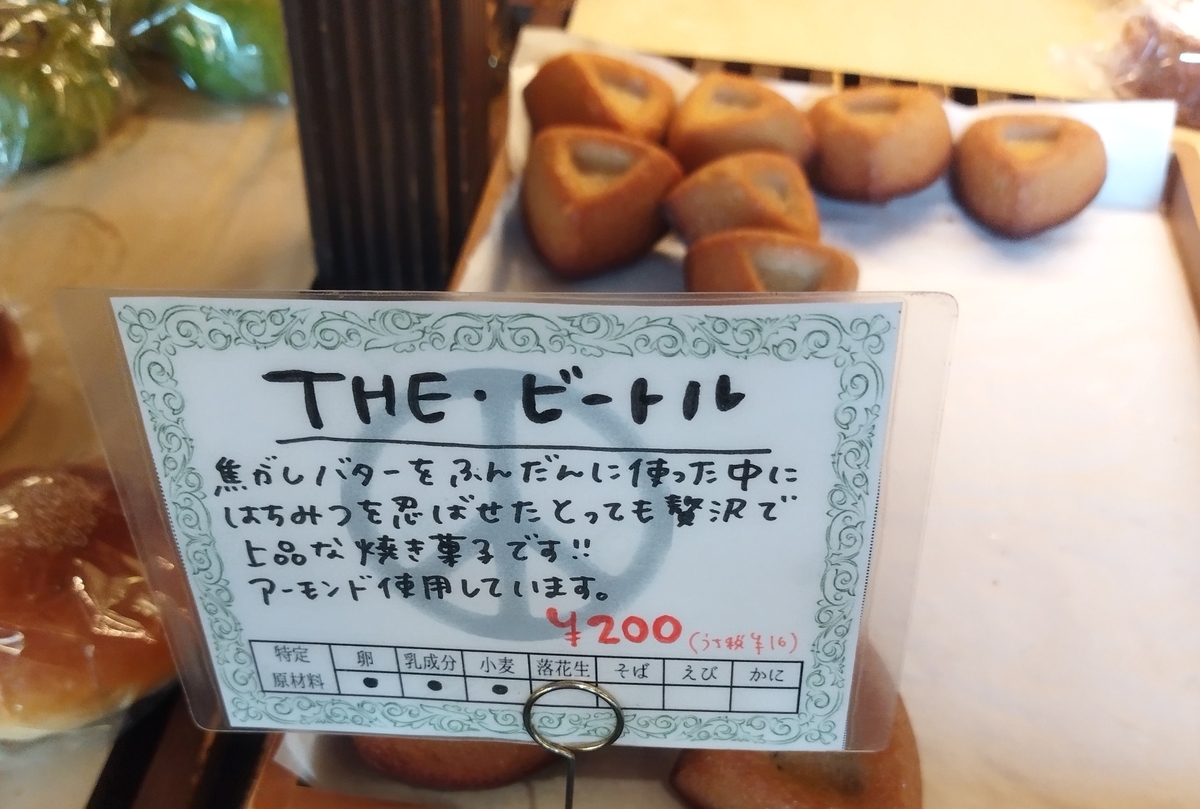 THE・ビートル
焦がしバターをふんだんに使った中に
はちみつを忍ばせたとっても贅沢で
上品な焼き菓子です!!
アーモンド使用しています。
¥200(うち税¥16)
特定原材料 卵 乳成分 小麦 落花生 そば えび かに
● ● ●